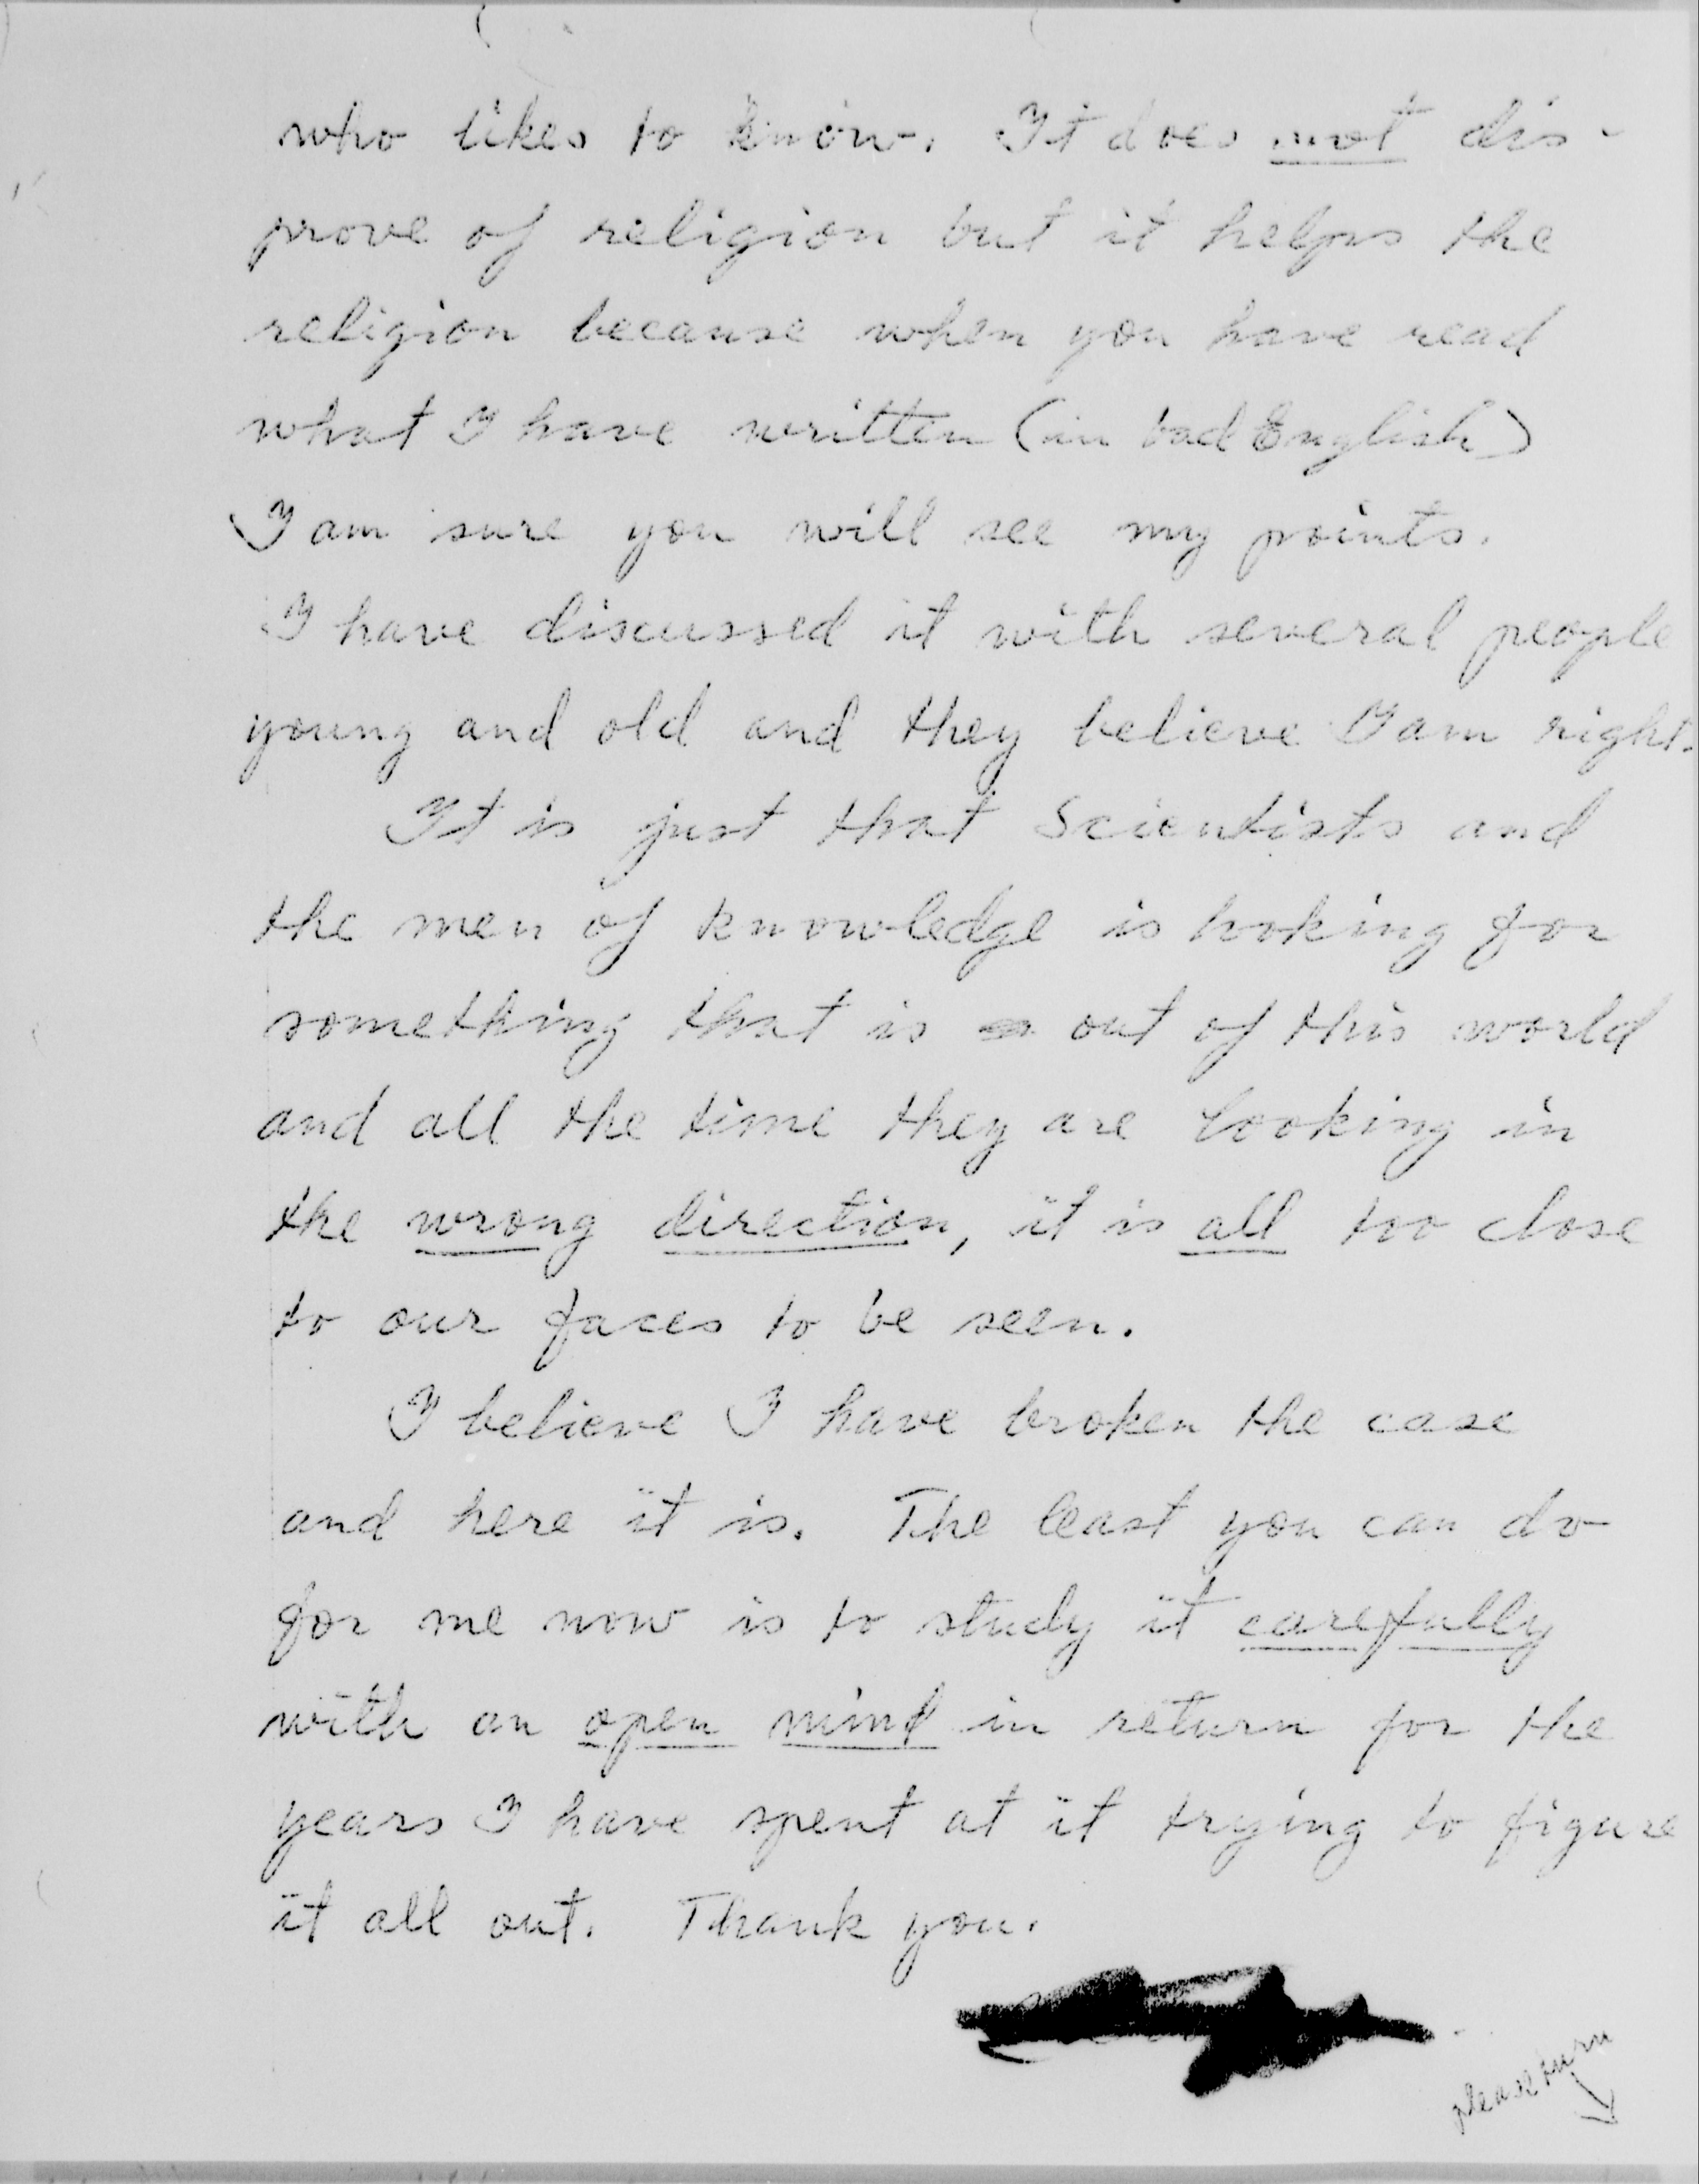 who likes to know. It does not dis-
prove of religion but it helps the
religion because when you have read
what I have written (in bad English)
I am sure you will see my points.
I have discussed it with several people
young and old and they believe I am right.
It is just that Scientists and
the men of knowledge is looking for
something that is out of this world
and all the time they are looking in
the wrong direction, it is all too close
to our faces to be seen.
I believe I have broken the case
and here it is. The least you can do
for me now is to study it carefully
with an open mind in return for the
years I have spent at it trying to figure
it all out. Thank you.
please turn